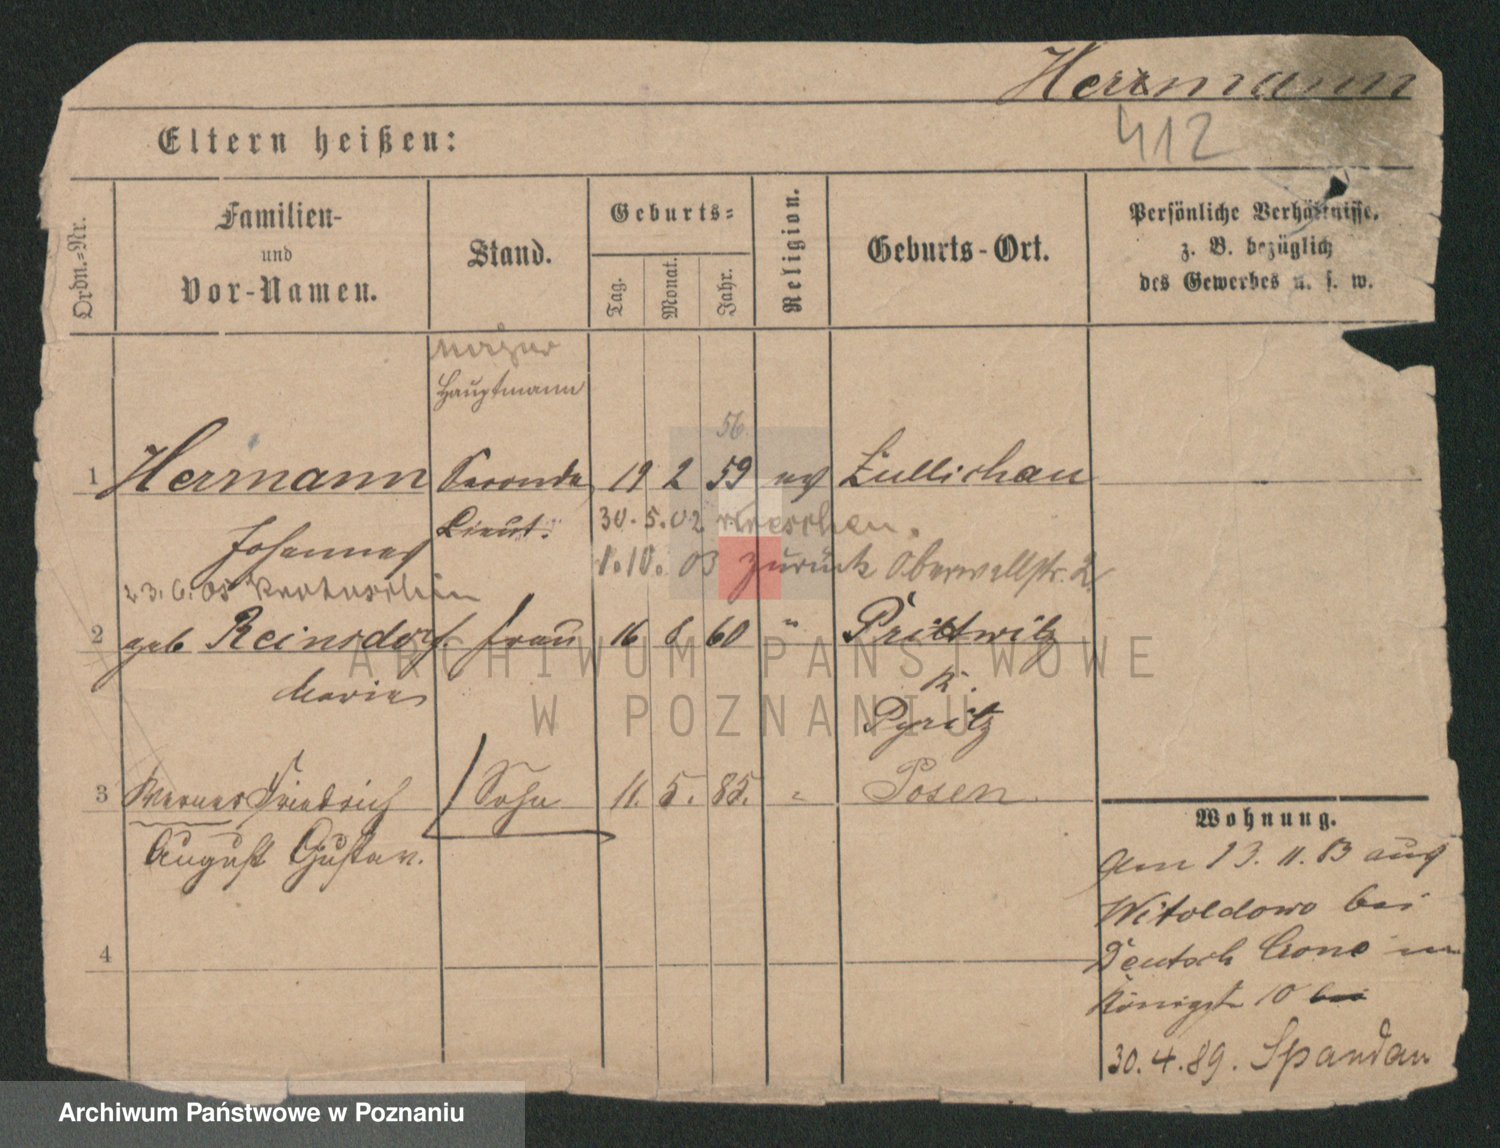 Herrmann
412
Eltern heißen:
Ordn.-Nr.
Familien-
und
Vor-Namen.
Stand.
Geburts-
Tag.
Monat.
Jahr.
Religion.
Geburts-Ort.
Persönliche Verhältnisse,
z. B. bezüglich
des Gewerbes u. s. w.
Major
Hauptmann
56
1 Herrmann Seconde 19 2 59 ev Züllichau
Johannes Lieut. 30.5.02 Wreschen.
1.10.03 zurück Oberwallstr. 2
23.6.05 Krotoschin
2 geb Reinsdorf. Frau 16 6 60 " Prillwitz
Marie K.
Pyritz
3 Werner Friedrich / Sohn 11. 5. 85. " Posen
August Gustav.
4
Wohnung.
am 13.11.83 aus
Witoldowo bei
Deutsch Crone in
Königstr 10 bei
30.4.89. Spandau
ARCHIWUM PAŃSTWOWE
W POZNANIU
Archiwum Państwowe w Poznaniu